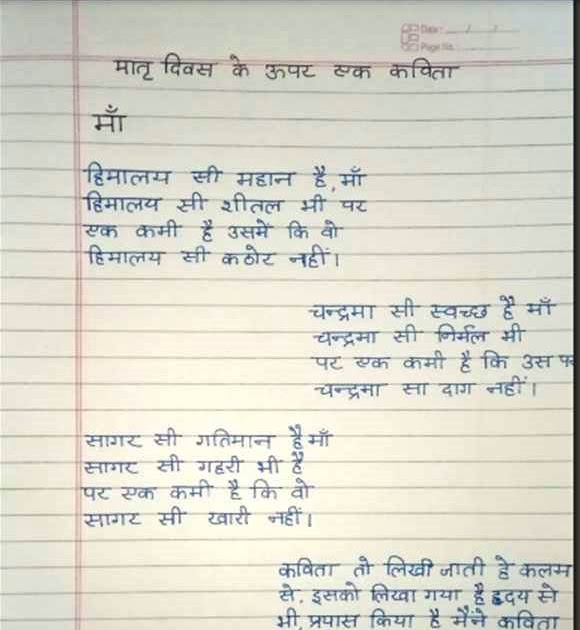 Date : / /
Page No.
मातृ दिवस के ऊपर एक कविता
माँ
हिमालय सी महान है, माँ
हिमालय सी शीतल भी पर
एक कमी है उसमे कि वो
हिमालय सी कठोर नहीं।
चन्द्रमा सी स्वच्छ है माँ
चन्द्रमा सी निर्मल भी
पर एक कमी है कि उस
चन्द्रमा सा दाग नहीं।
सागर सी गतिमान है माँ
सागर सी गहरी भी है
पर एक कमी है कि वो
सागर सी खारी नहीं।
कविता तो लिखी जाती हे कलम
से, इसको लिखा गया है हृदय से
भी प्रयास किया है मैंने कविता